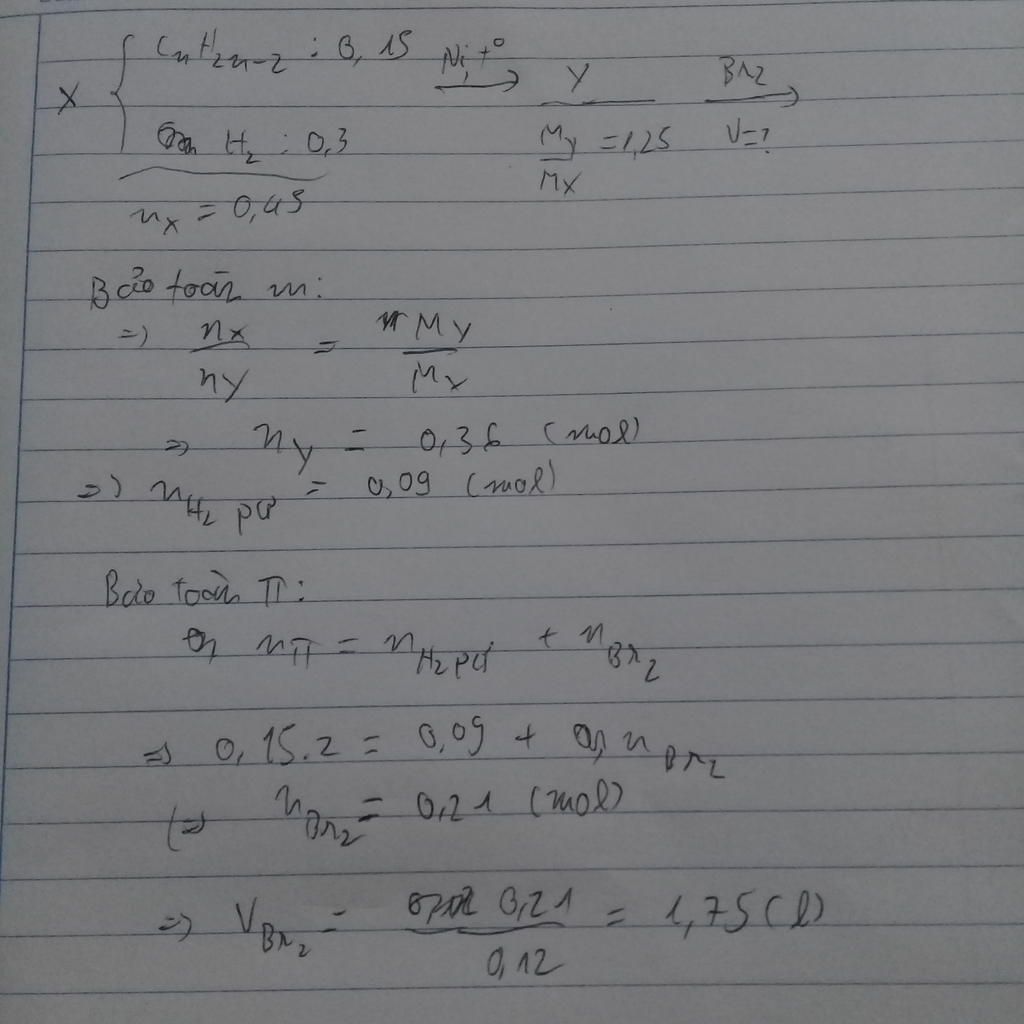 X { CnH2n-2 : 0,15 Ni, t° → Y Br2 →
H2 : 0,3 MY/MX = 1,25 V=?
nX = 0,45
Bảo toàn m:
=> nX/nY = MY/MX
=> nY = 0,36 (mol)
=> nH2 pứ = 0,09 (mol)
Bảo toàn π:
nπ = nH2 pứ + nBr2
=> 0,15.2 = 0,09 + nBr2
(=> nBr2 = 0,21 (mol)
=> VBr2 = 0,21/0,12 = 1,75 (l)